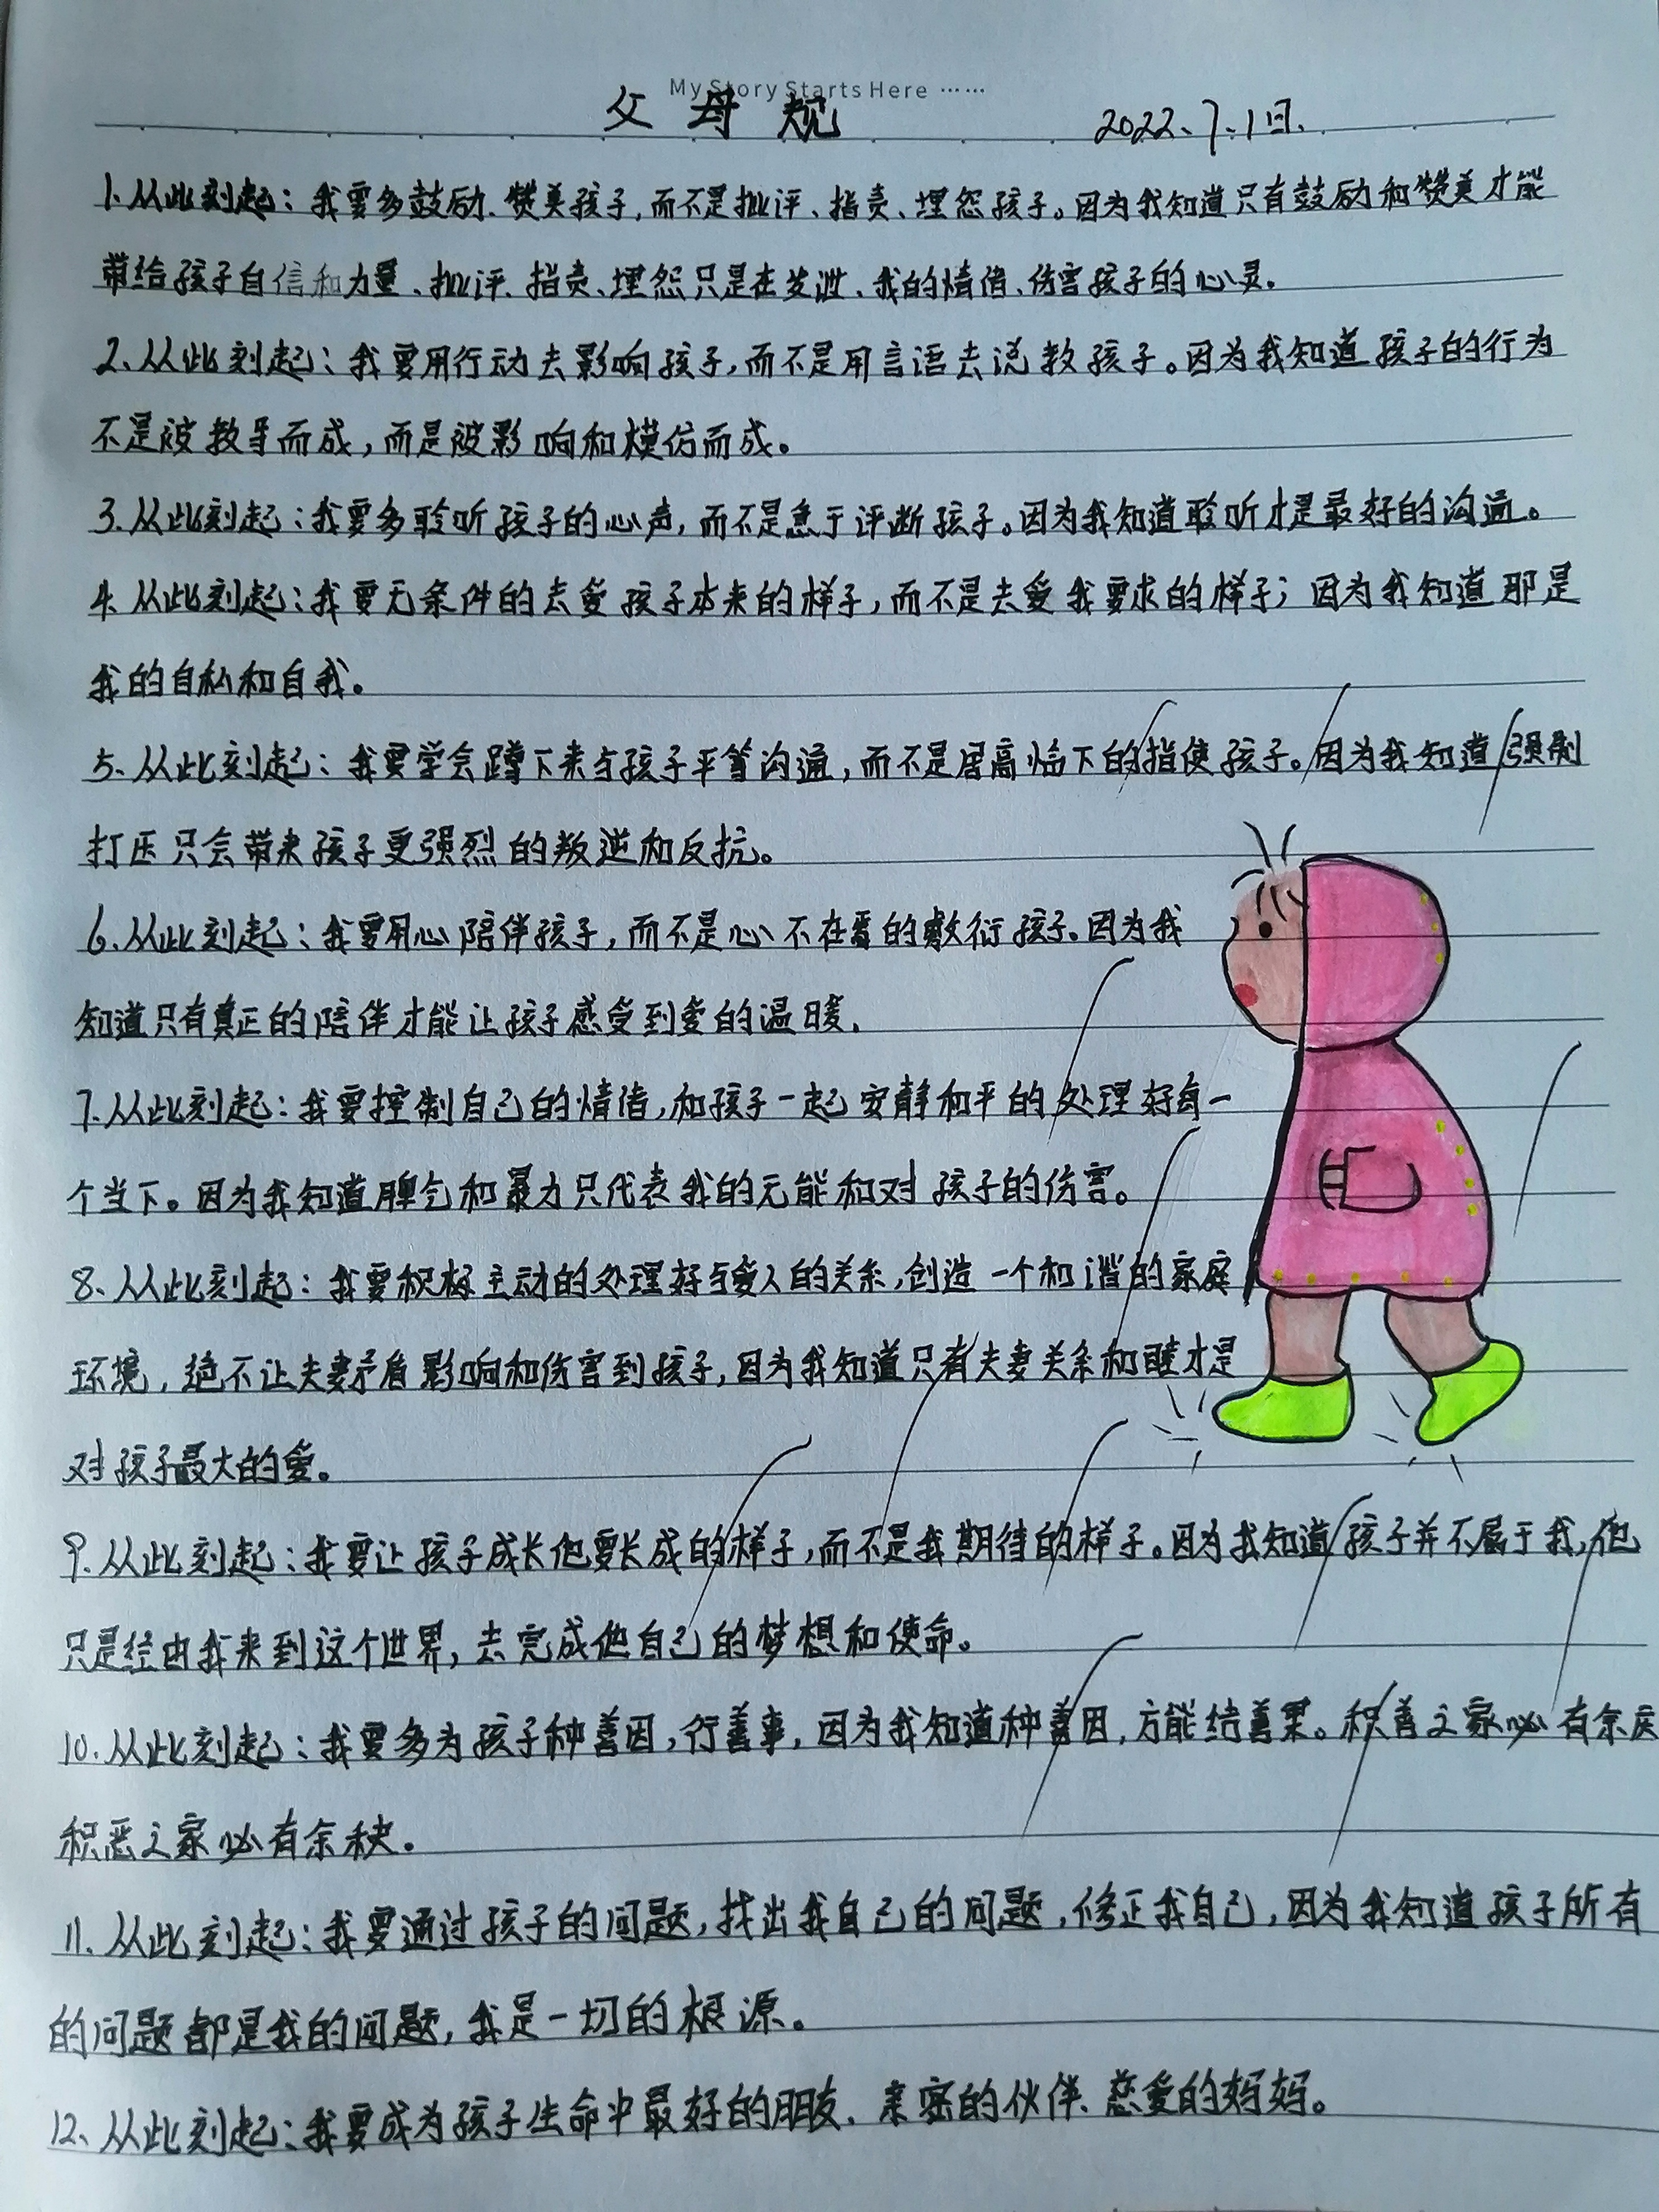 My Story Starts Here ……
父母规 2022、7.1日.
1.从此刻起：我要多鼓励、赞美孩子，而不是批评、指责、埋怨孩子。因为我知道只有鼓励和赞美才能
带给孩子自信和力量、批评、指责、埋怨只是在发泄、我的情绪、伤害孩子的心灵。
2.从此刻起：我要用行动去影响孩子，而不是用言语去说教孩子。因为我知道孩子的行为
不是被教导而成，而是被影响和模仿而成。
3.从此刻起：我要多聆听孩子的心声，而不是急于评断孩子。因为我知道聆听才是最好的沟通。
4.从此刻起：我要无条件的去爱孩子本来的样子，而不是去爱我要求的样子；因为我知道那是
我的自私和自我。
5、从此刻起：我要学会蹲下来与孩子平等沟通，而不是居高临下的指使孩子。因为我知道强制
打压只会带来孩子更强烈的叛逆和反抗。
6.从此刻起：我要用心陪伴孩子，而不是心不在焉的敷衍孩子。因为我
知道只有真正的陪伴才能让孩子感受到爱的温暖.
7.从此刻起：我要控制自己的情绪，和孩子一起安静和平的处理好每一
个当下。因为我知道脾气和暴力只代表我的无能和对孩子的伤害。
8、从从此刻起：我要积极主动的处理好与爱人的关系，创造一个和谐的家庭
环境，绝不让夫妻矛盾影响和伤害到孩子，因为我知道只有夫妻关系和睦才是
对孩子最大的爱。
9.从此刻起：我要让孩子成长他要长成的样子，而不是我期待的样子。因为我知道孩子并不属于我，他
只是经由我来到这个世界，去完成他自己的梦想和使命。
10.从此刻起：我要多为孩子种善因，行善事，因为我知道种善因，方能结善果。积善之家必有余庆
积恶之家必有余秧。
11.从此刻起：我要通过孩子的问题，找出我自己的问题，修正我自己，因为我知道孩子所有
的问题都是我的问题，我是一切的根源。
12、从此刻起：我要成为孩子生命中最好的朋友、亲密的伙伴、慈爱的妈妈。